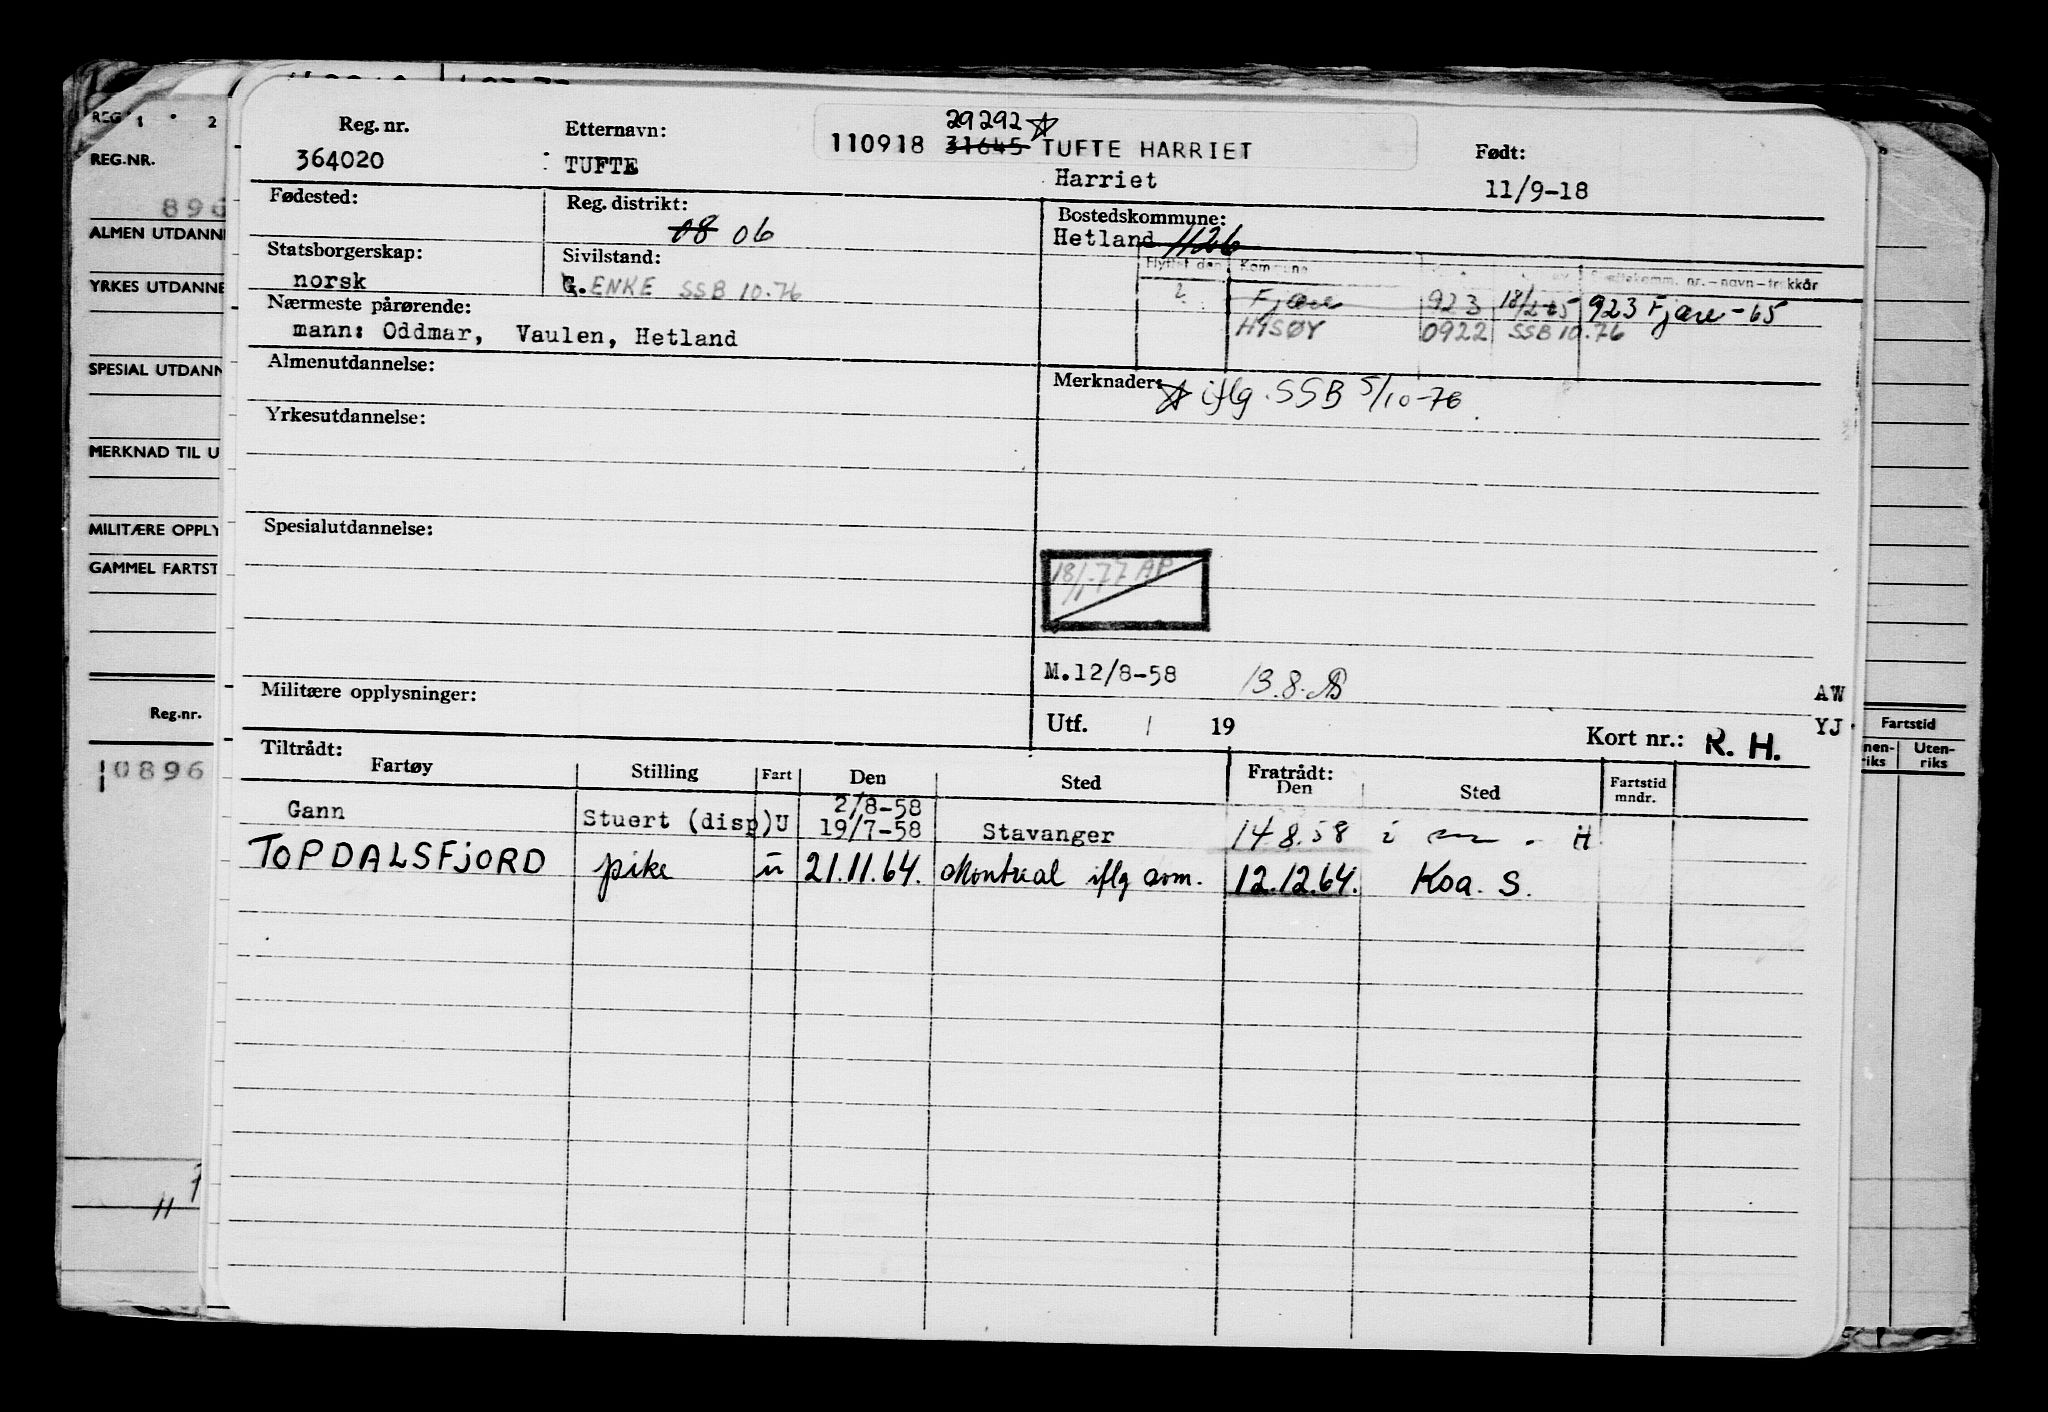 REG.NR.
896
ALMEN UTDANN
YRKES UTDANNE
SPESIAL UTDANN
MERKNAD TIL U
MILITÆRE OPPLY
GAMMEL FARTST
Reg.nr.
0896
11
Reg. nr.
364020
Etternavn:
TUFTE
29292 ☆
110918 31645 TUFTE HARRIET
Harriet
Født:
11/9-18
Fødested:
Reg. distrikt:
08 06
Bostedskommune:
Hetland 1126
Statsborgerskap:
norsk
Sivilstand:
G. ENKE SSB 10.76
Flyttet den Kommune
nr.-navn-trekkår
Fjære 923 18/2-65 923 Fjære-65
HISØY 0922 SSB 10.76
Nærmeste pårørende:
mann: Oddmar, Vaulen, Hetland
Almenutdannelse:
Merknader:
☆ iflg. SSB 5/10-76.
Yrkesutdannelse:
Spesialutdannelse:
18/1-77 AP
M.12/8-58 13.8.
Militære opplysninger:
AW
Utf. / 19
Kort nr.: R. H.
YJ
Tiltrådt:
Fartøy Stilling Fart Den Sted Fratrådt: Den Sted Fartstid mndr.
2/8-58
Gann Stuert (disp) U 19/7-58 Stavanger 14.8.58 H
TOPDALSFJORD pike u 21.11.64. Montreal iflg om. 12.12.64. Koa. S.
Fartstid
nen-riks Uten-riks